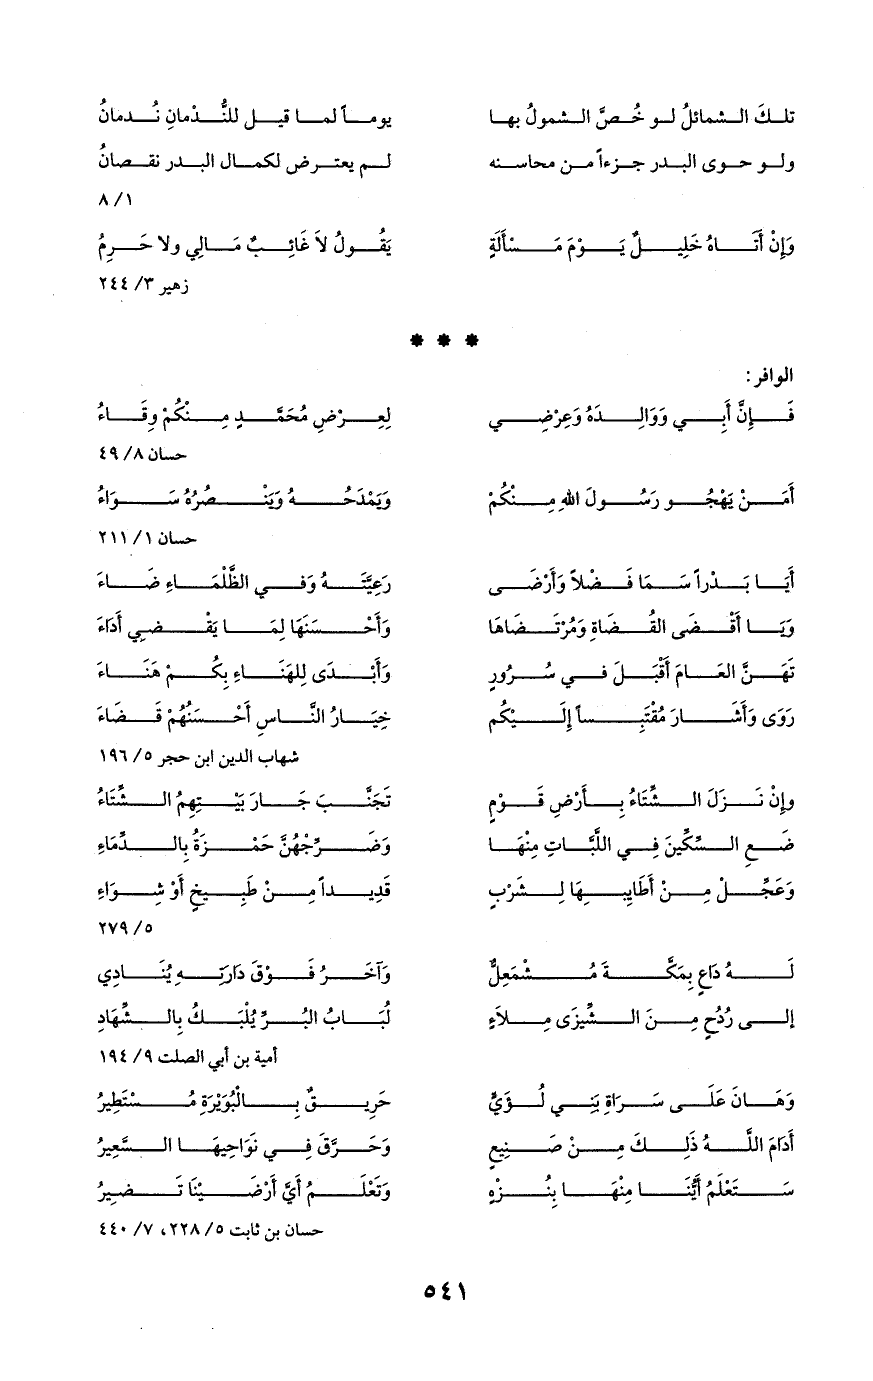 تلكَ الشمائلُ لو خُصَّ الشمولُ بها يوماً لما قيل للنُّدْمانِ نُدمانُ
ولو حوى البدر جزءاً من محاسنه لم يعترض لكمال البدر نقصانُ
٨/١
وَإِنْ أَتَاهُ خَلِيلٌ يَوْمَ مَسْأَلَةٍ يَقُولُ لاَ غَائِبٌ مَالِي ولا حَرِمُ
زهير ٢٤٤/٣
* * *
الوافر:
فَإِنَّ أَبِي وَوَالِدَهُ وَعِرْضِي لِعِرْضِ مُحَمَّدٍ مِنْكُمْ وِقَاءُ
حسان ٤٩/٨
أَمَنْ يَهْجُو رَسُولَ اللهِ مِنْكُمْ وَيَمْدَحُهُ وَيَنْصُرُهُ سَوَاءُ
حسان ٢١١/١
أَيَا بَدْراً سَمَا فَضْلاً وَأَرْضَى رَعِيَّتَهُ وَفي الظَّلْمَاءِ ضَاءَ
وَيَا أَقْضَى القُضَاةِ وَمُرْتَضَاهَا وَأَحْسَنَهَا لِمَا يَقْضِي أَدَاءَ
تَهَنَّ العَامَ أَقْبَلَ في سُرُورٍ وَأَبْدَى لِلهَنَاءِ بِكُمْ هَنَاءَ
رَوَى وَأَشَارَ مُقْتَبِساً إِلَيْكُم خِيَارُ النَّاسِ أَحْسَنُهُمْ قَضَاءَ
شهاب الدين ابن حجر ١٩٦/٥
وإِنْ نَزَلَ الشِّتَاءُ بِأَرْضِ قَوْمٍ تَجَنَّبَ جَارَ بَيْتِهِمُ الشِّتَاءُ
ضَعِ السِّكِّينَ فِي اللَّبَّاتِ مِنْهَا وَضَرِّجْهُنَّ حَمْزَةُ بِالدِّمَاءِ
وَعَجِّلْ مِنْ أَطَايِبِهَا لِشَرْبٍ قَدِيداً مِنْ طَبِيخٍ أَوْ شِوَاءِ
٢٧٩/٥
لَهُ دَاعٍ بِمَكَّةَ مُشْمَعِلٌّ وَآخَرُ فَوْقَ دَارَتِهِ يُنَادِي
إلى رُدُحٍ مِنَ الشِّيزَى مِلاَءٍ لُبَابُ البُرِّ يُلْبَكُ بِالشِّهَادِ
أمية بن أبي الصلت ١٩٤/٩
وَهَانَ عَلَى سَرَاةِ بَنِي لُؤَيٍّ حَرِيقٌ بِالْبُوَيْرَةِ مُسْتَطِيرُ
أَدَامَ اللَّهُ ذَلِكَ مِنْ صَنِيعٍ وَحَرَّقَ فِي نَوَاحِيهَا السَّعِيرُ
سَتَعْلَمُ أَيُّنَا مِنْهَا بِنُزْهٍ وَتَعْلَمُ أَيَّ أَرْضَيْنَا تَضِيرُ
حسان بن ثابت ٢٢٨/٥، ٤٤٠/٧
٥٤١